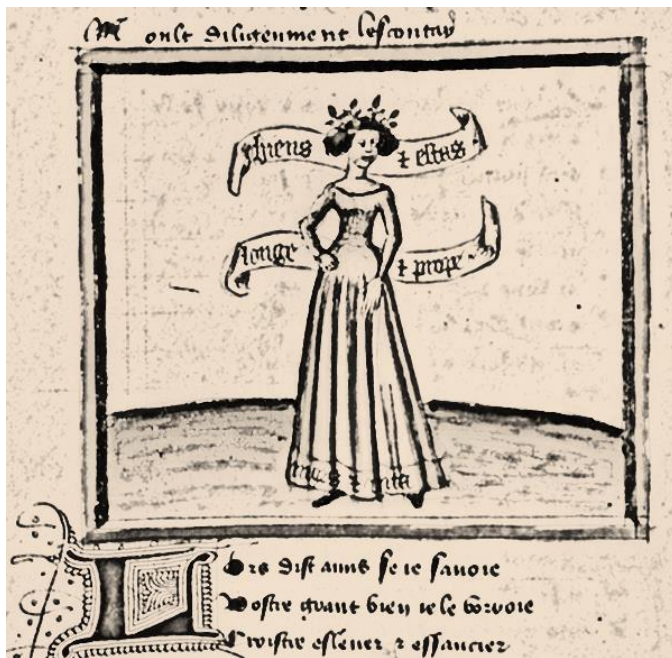 Moult diligenment lescoutay
hyens ⁊ estas
longe ⁊ prope
mors ⁊ vita
Lors dist amis se ie sauoie
Vostre grant bien ie le vorroie
Croistre esleuer ⁊ essaucier